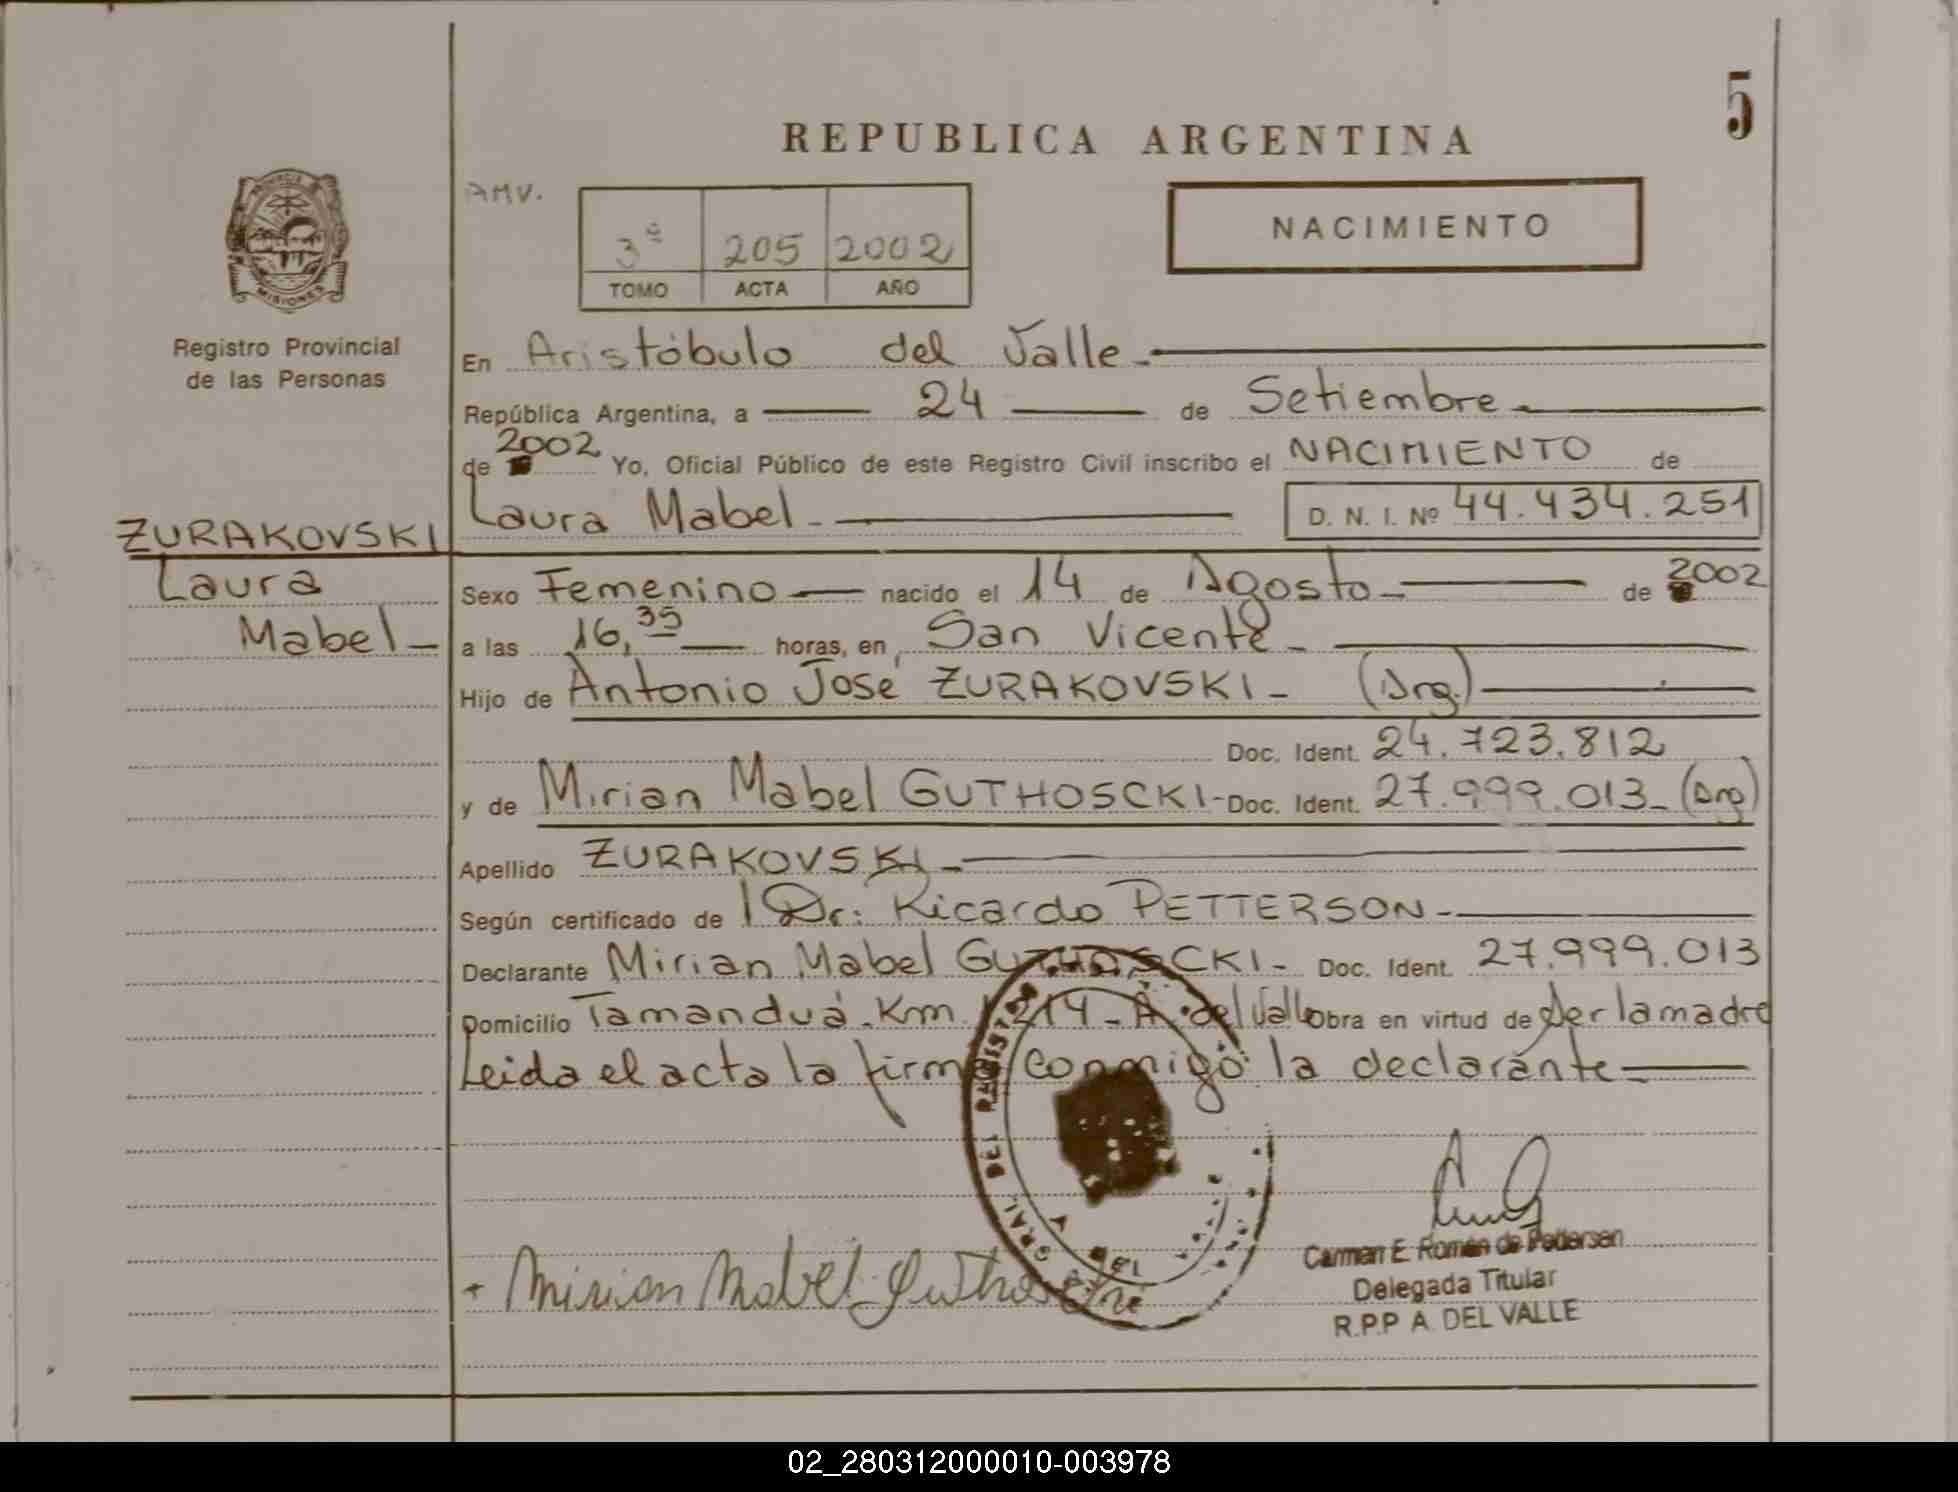 5
REPUBLICA ARGENTINA
AMV.
3º 205 2002
TOMO ACTA AÑO
NACIMIENTO
PROVINCIA DE
MISIONES
Registro Provincial
de las Personas
ZURAKOVSKI
Laura
Mabel
En Aristóbulo del Valle
República Argentina, a 24 de Setiembre
de 2002 Yo, Oficial Público de este Registro Civil inscribo el NACIMIENTO de
Laura Mabel D. N. I. Nº 44.434.251
Sexo Femenino nacido el 14 de Agosto de 2002
a las 16,35 horas, en San Vicente
Hijo de Antonio José ZURAKOVSKI (Arg.)
Doc. Ident. 24.723.812
y de Mirian Mabel GUTHOSCKI Doc. Ident. 27.999.013 (Arg)
Apellido ZURAKOVSKI
Según certificado de Dr: Ricardo PETTERSON
Declarante Mirian Mabel GUTHOSCKI Doc. Ident. 27.999.013
Domicilio Tamanduá. Km 214 - A. del Valle Obra en virtud de ser la madre
Leida el acta la firma conmigo la declarante
GRAL. DEL REGISTRO
Mirian Mabel Guthoscki
Carmen E. Román de Pedersen
Delegada Titular
R.P.P A. DEL VALLE
02_280312000010-003978